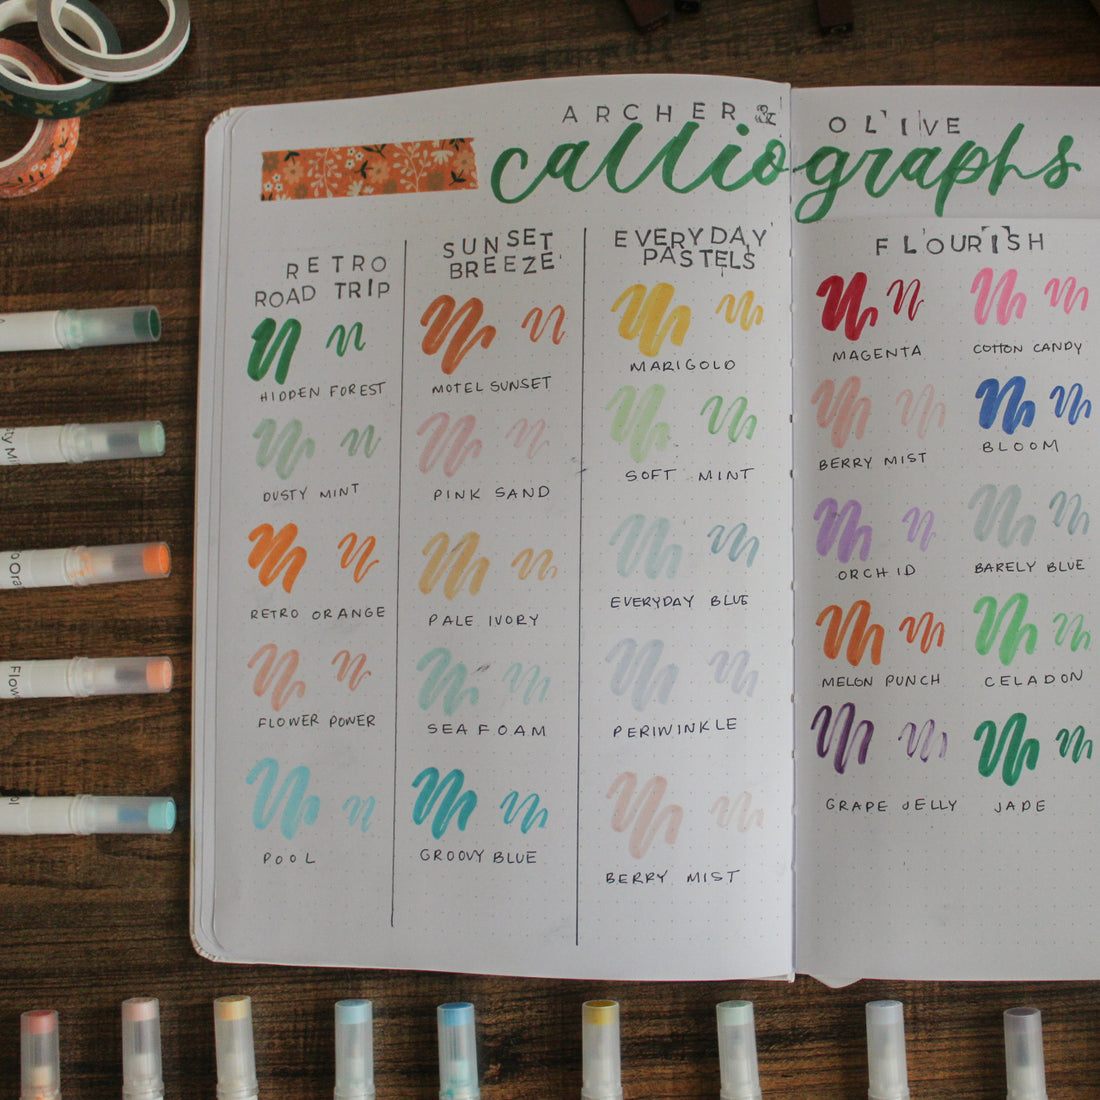 ARCHER & OLIVE
calliographs
RETRO
ROAD TRIP
HIDDEN FOREST
DUSTY MINT
RETRO ORANGE
FLOWER POWER
POOL
SUNSET
BREEZE
MOTEL SUNSET
PINK SAND
PALE IVORY
SEA FOAM
GROOVY BLUE
EVERYDAY
PASTELS
MARIGOLD
SOFT MINT
EVERYDAY BLUE
PERIWINKLE
BERRY MIST
FLOURISH
MAGENTA
COTTON CANDY
BERRY MIST
BLOOM
ORCHID
BARELY BLUE
MELON PUNCH
CELADON
GRAPE JELLY
JADE